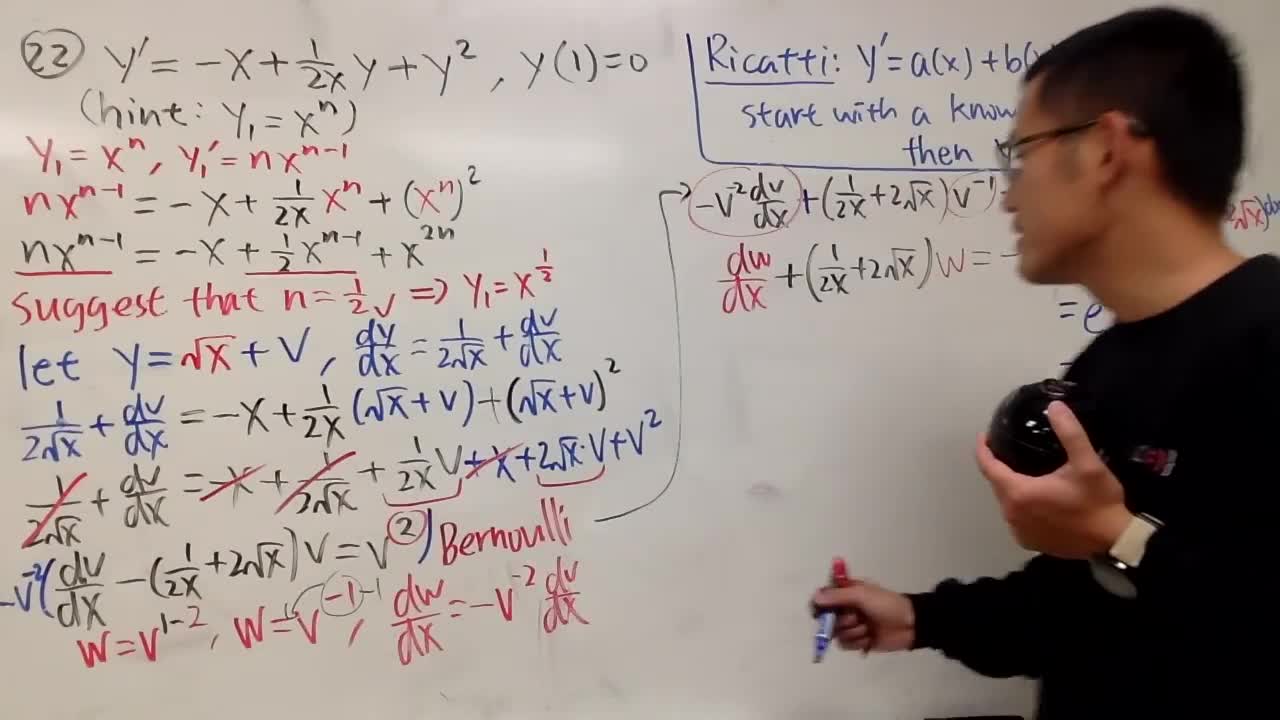 22 y' = -x + 1/2x y + y², y(1)=0
(hint: y₁ = xⁿ)
y₁ = xⁿ, y₁' = nxⁿ⁻¹
nxⁿ⁻¹ = -x + 1/2x xⁿ + (xⁿ)²
nxⁿ⁻¹ = -x + 1/2 xⁿ⁻¹ + x²ⁿ
suggest that n = 1/2 ✓ ⇒ y₁ = x^(1/2)
let y = √x + v, dy/dx = 1/2√x + dv/dx
1/2√x + dv/dx = -x + 1/2x (√x + v) + (√x + v)²
1/2√x + dv/dx = -x + 1/2√x + 1/2x v + x + 2√x·v + v²
-v⁻²(dv/dx - (1/2x + 2√x)v = v²) Bernoulli
w = v¹⁻², w = v⁻¹ -1, dw/dx = -v⁻² dv/dx
Ricatti: y' = a(x) + b(
start with a know
then
-v⁻² dv/dx + (1/2x + 2√x) v⁻¹
√x)dx
dw/dx + (1/2x + 2√x) w = -
= e
=